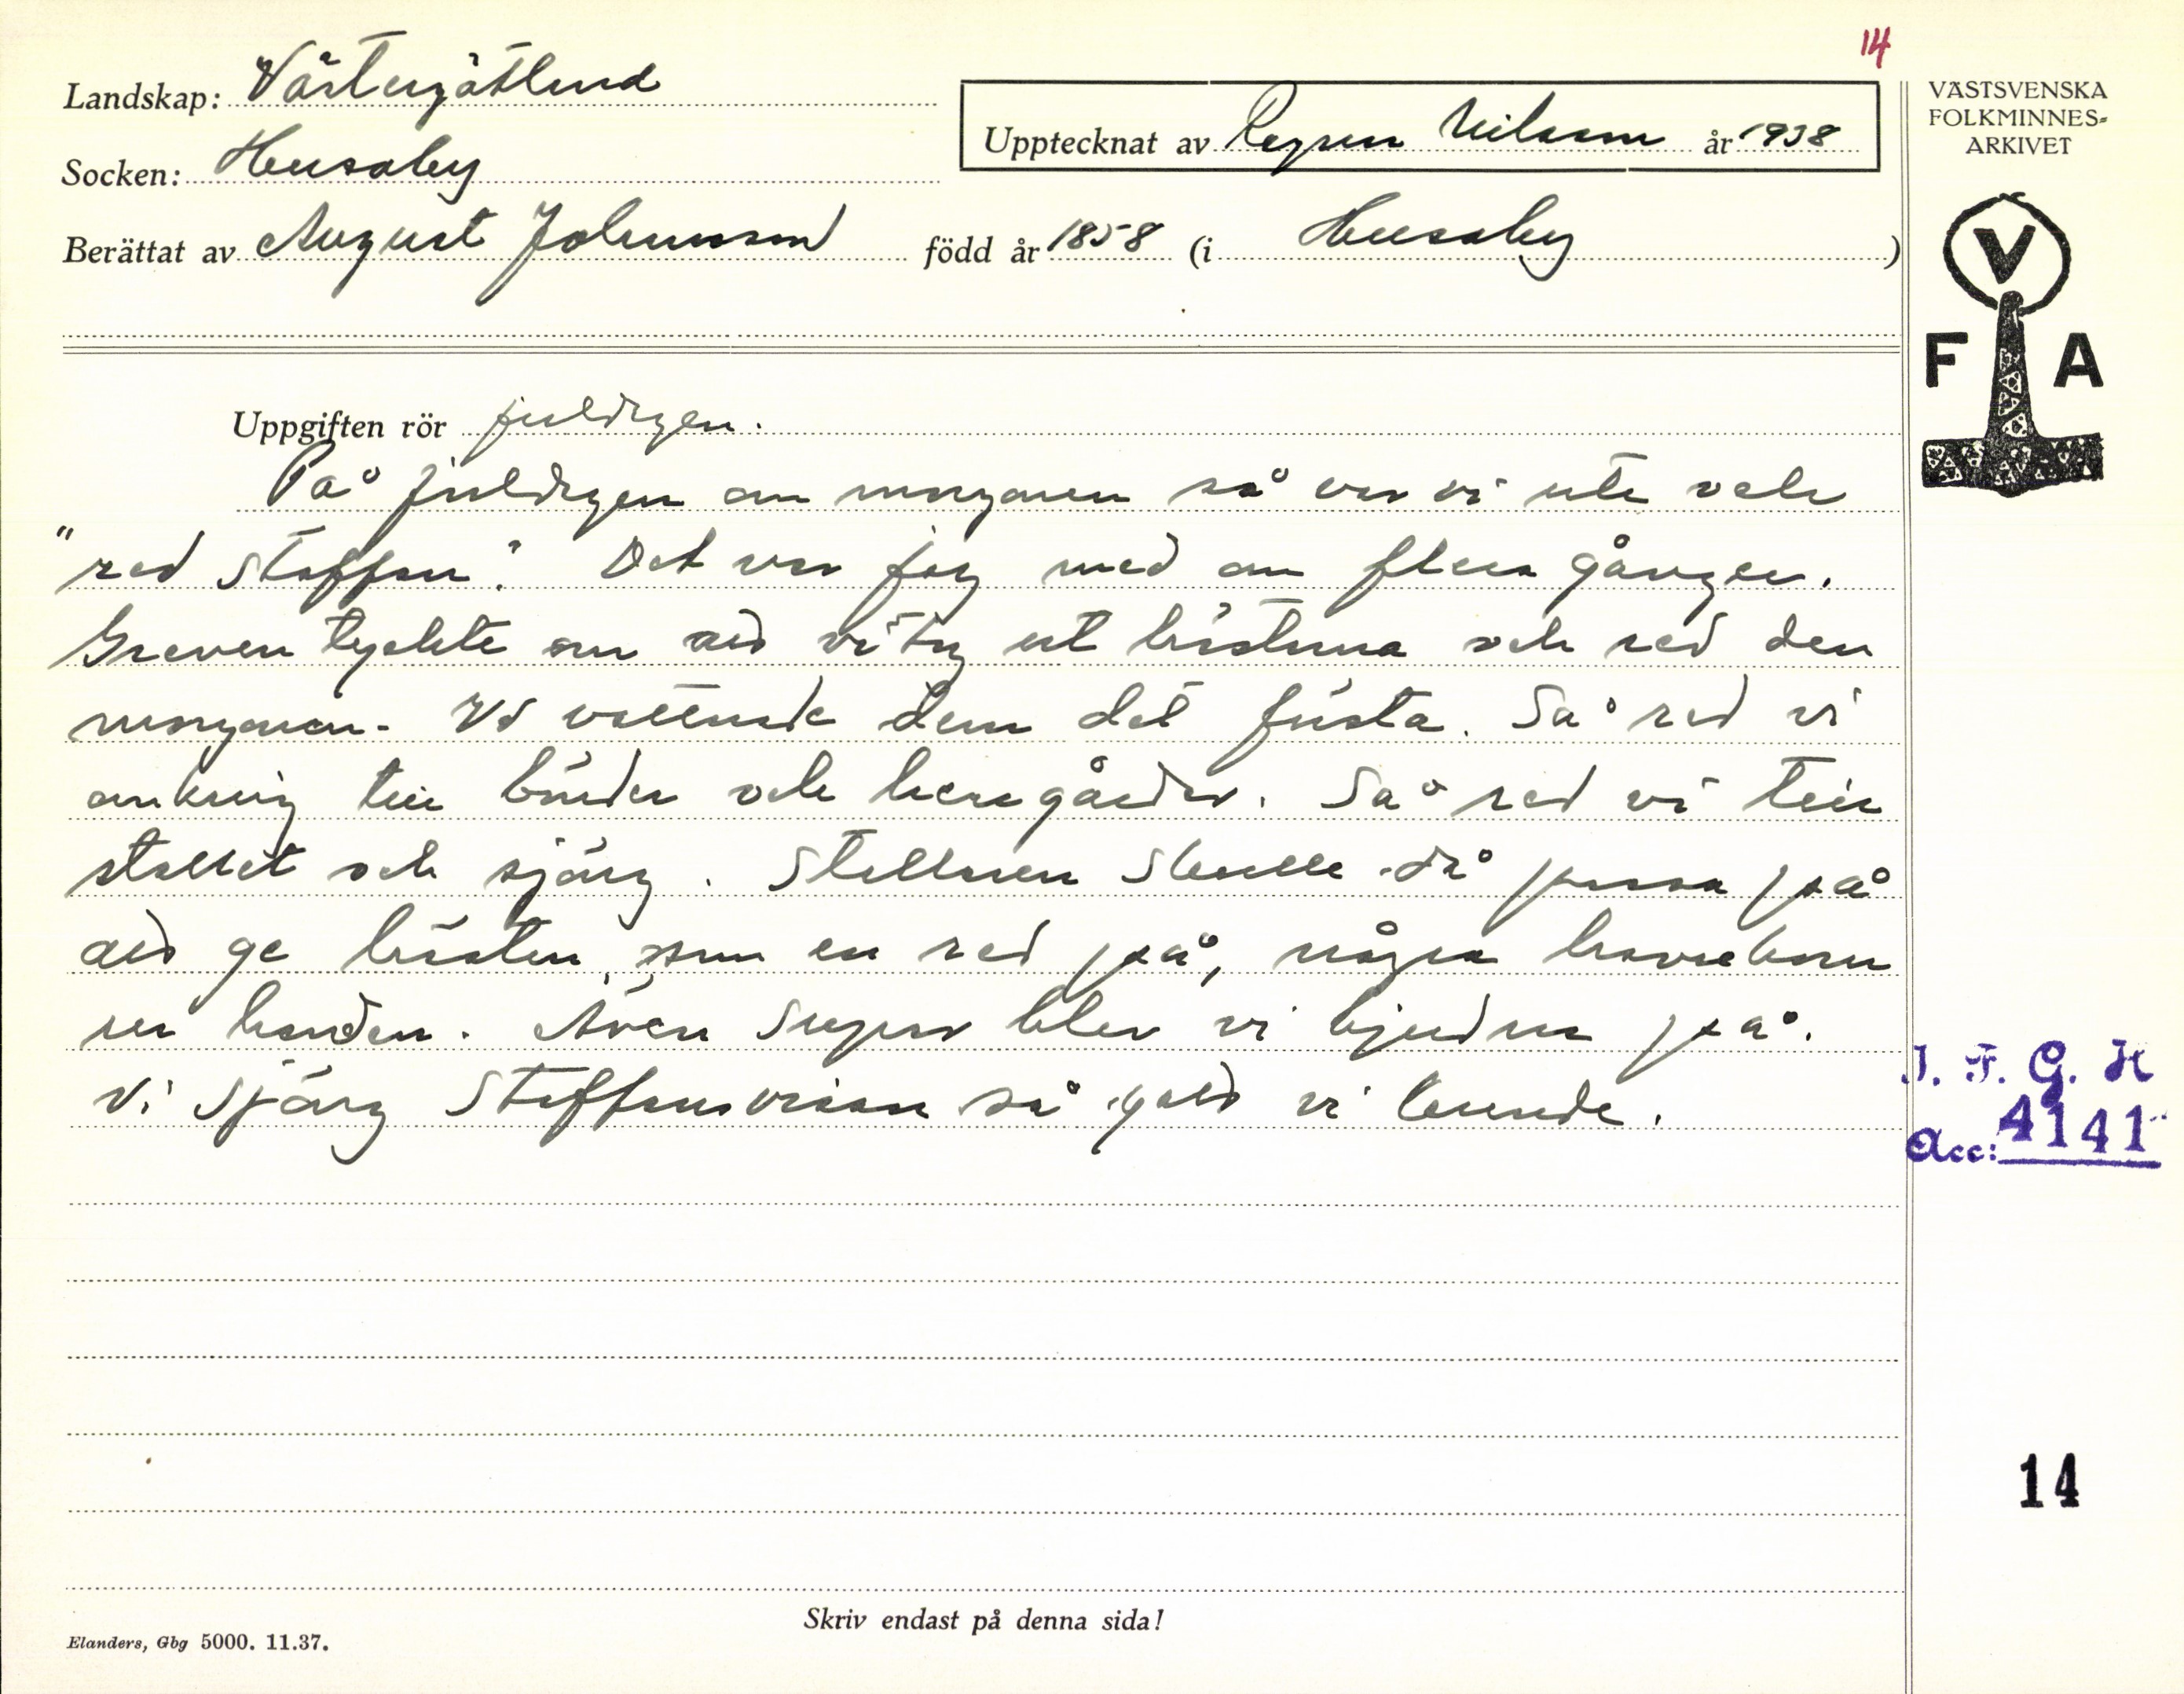 14
Landskap: Västergötland
Upptecknat av Ragnar Nilsson år 1938
VÄSTSVENSKA
FOLKMINNES=
ARKIVET
Socken: Husaby
Berättat av August Johansson född år 1858 (i Husaby)
V
F A
Uppgiften rör juldagen.
På juldagen om morgonen så var vi ute och
"red staffan". Det var jag med om flera gånger.
Greven tyckte om att vi tog ut hästarna och red den
morgonen. Vi vattnade dem det första. Så red vi
omkring till bönder och herregårdar. Så red vi till
stallet och sjöng. Stallaren skulle då passa på
att ge hästen, som en red på, några havrekorn
ur handen. Även supar blev vi bjudna på.
Vi sjöng Staffansvisan så gott vi kunde.
I. F. G. H
Acc: 4141
14
Skriv endast på denna sida!
Elanders, Gbg 5000. 11.37.